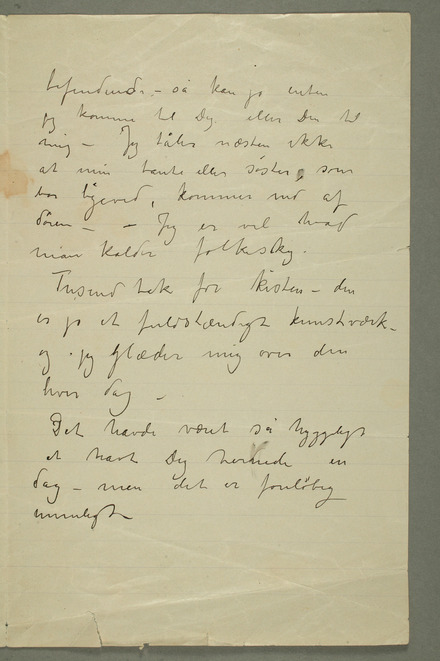 befindende – så kan jo enten
jeg komme til Dig eller Du til
mig – Jeg tåler næsten ikke
at min tante eller søster, som
bor ligeved, kommer ind af
dören – – Jeg er vel hvad
man kalder folkesky.
Tusend tak for kisten – den
er jo et fuldstændigt kunstværk –
og jeg glæder mig over den
hver dag –
Det havde været så hyggeligt
at havt Dig hernede en
dag – men det er foreløbig
umuligt